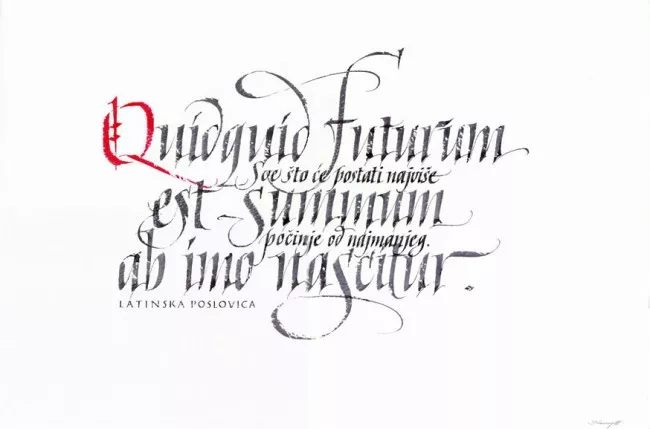 Quidquid futurum
Sve što će postati najviše
est summum
počinje od najmanjeg.
ab imo nascitur.
LATINSKA POSLOVICA